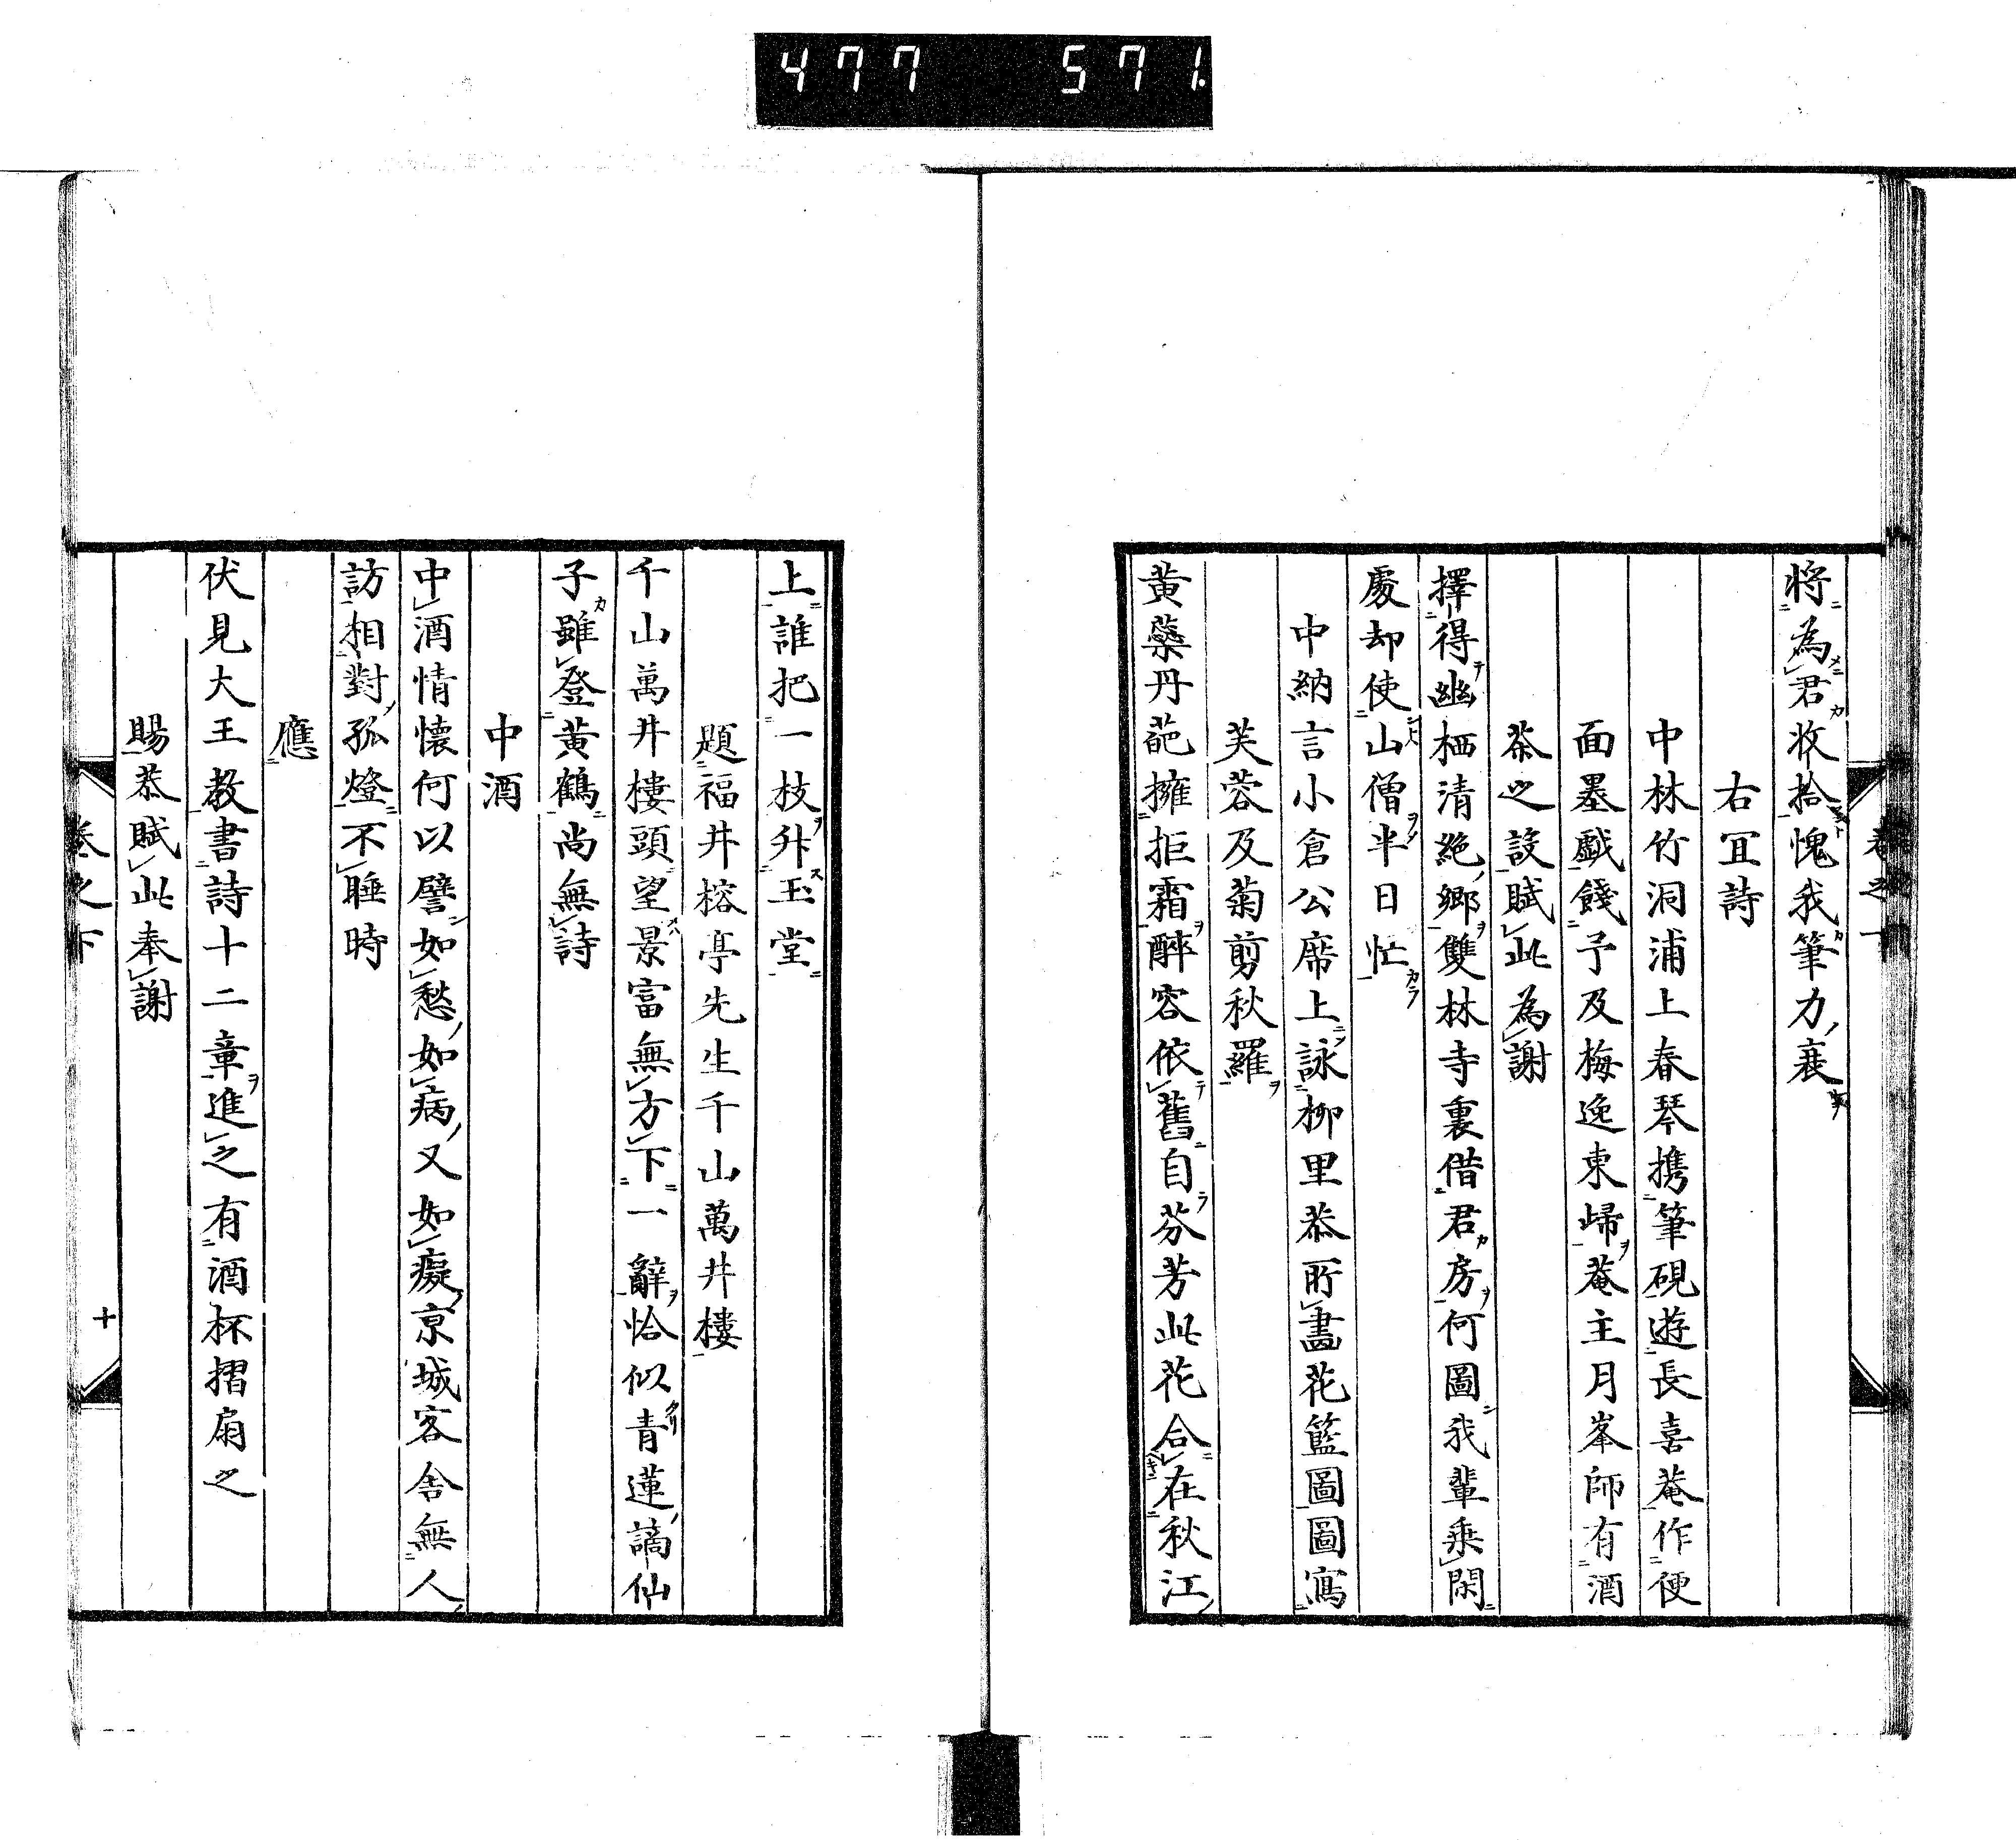 477 571.
将為君收拾愧我筆力衰
右冝詩
中林竹洞浦上春琴攜筆硯遊長喜菴作便
面墨戯餞予及梅逸東歸菴主月峯師有酒
茶之設賦此為謝
擇得幽栖清絶郷雙林寺裏借君房何圖我輩乗閑
處却使山僧半日忙
中納言小倉公席上詠柳里恭所畫花籃圖圖寫
芙蓉及菊剪秋羅
黄蘂丹葩擁拒霜醉容依舊自芬芳此花合在秋江
上誰把一枝升玉堂
題福井榕亭先生千山萬井樓
千山萬井樓頭望景富無方下一辭恰似青蓮謫仙
子雖登黄鶴尚無詩
中酒
中酒情懐何以譬如愁如病又如癡京城客舎無人
訪相對孤燈不睡時
應
伏見大王教書詩十二章進之有酒杯摺扇之
賜恭賦此奉謝
巻之下
十